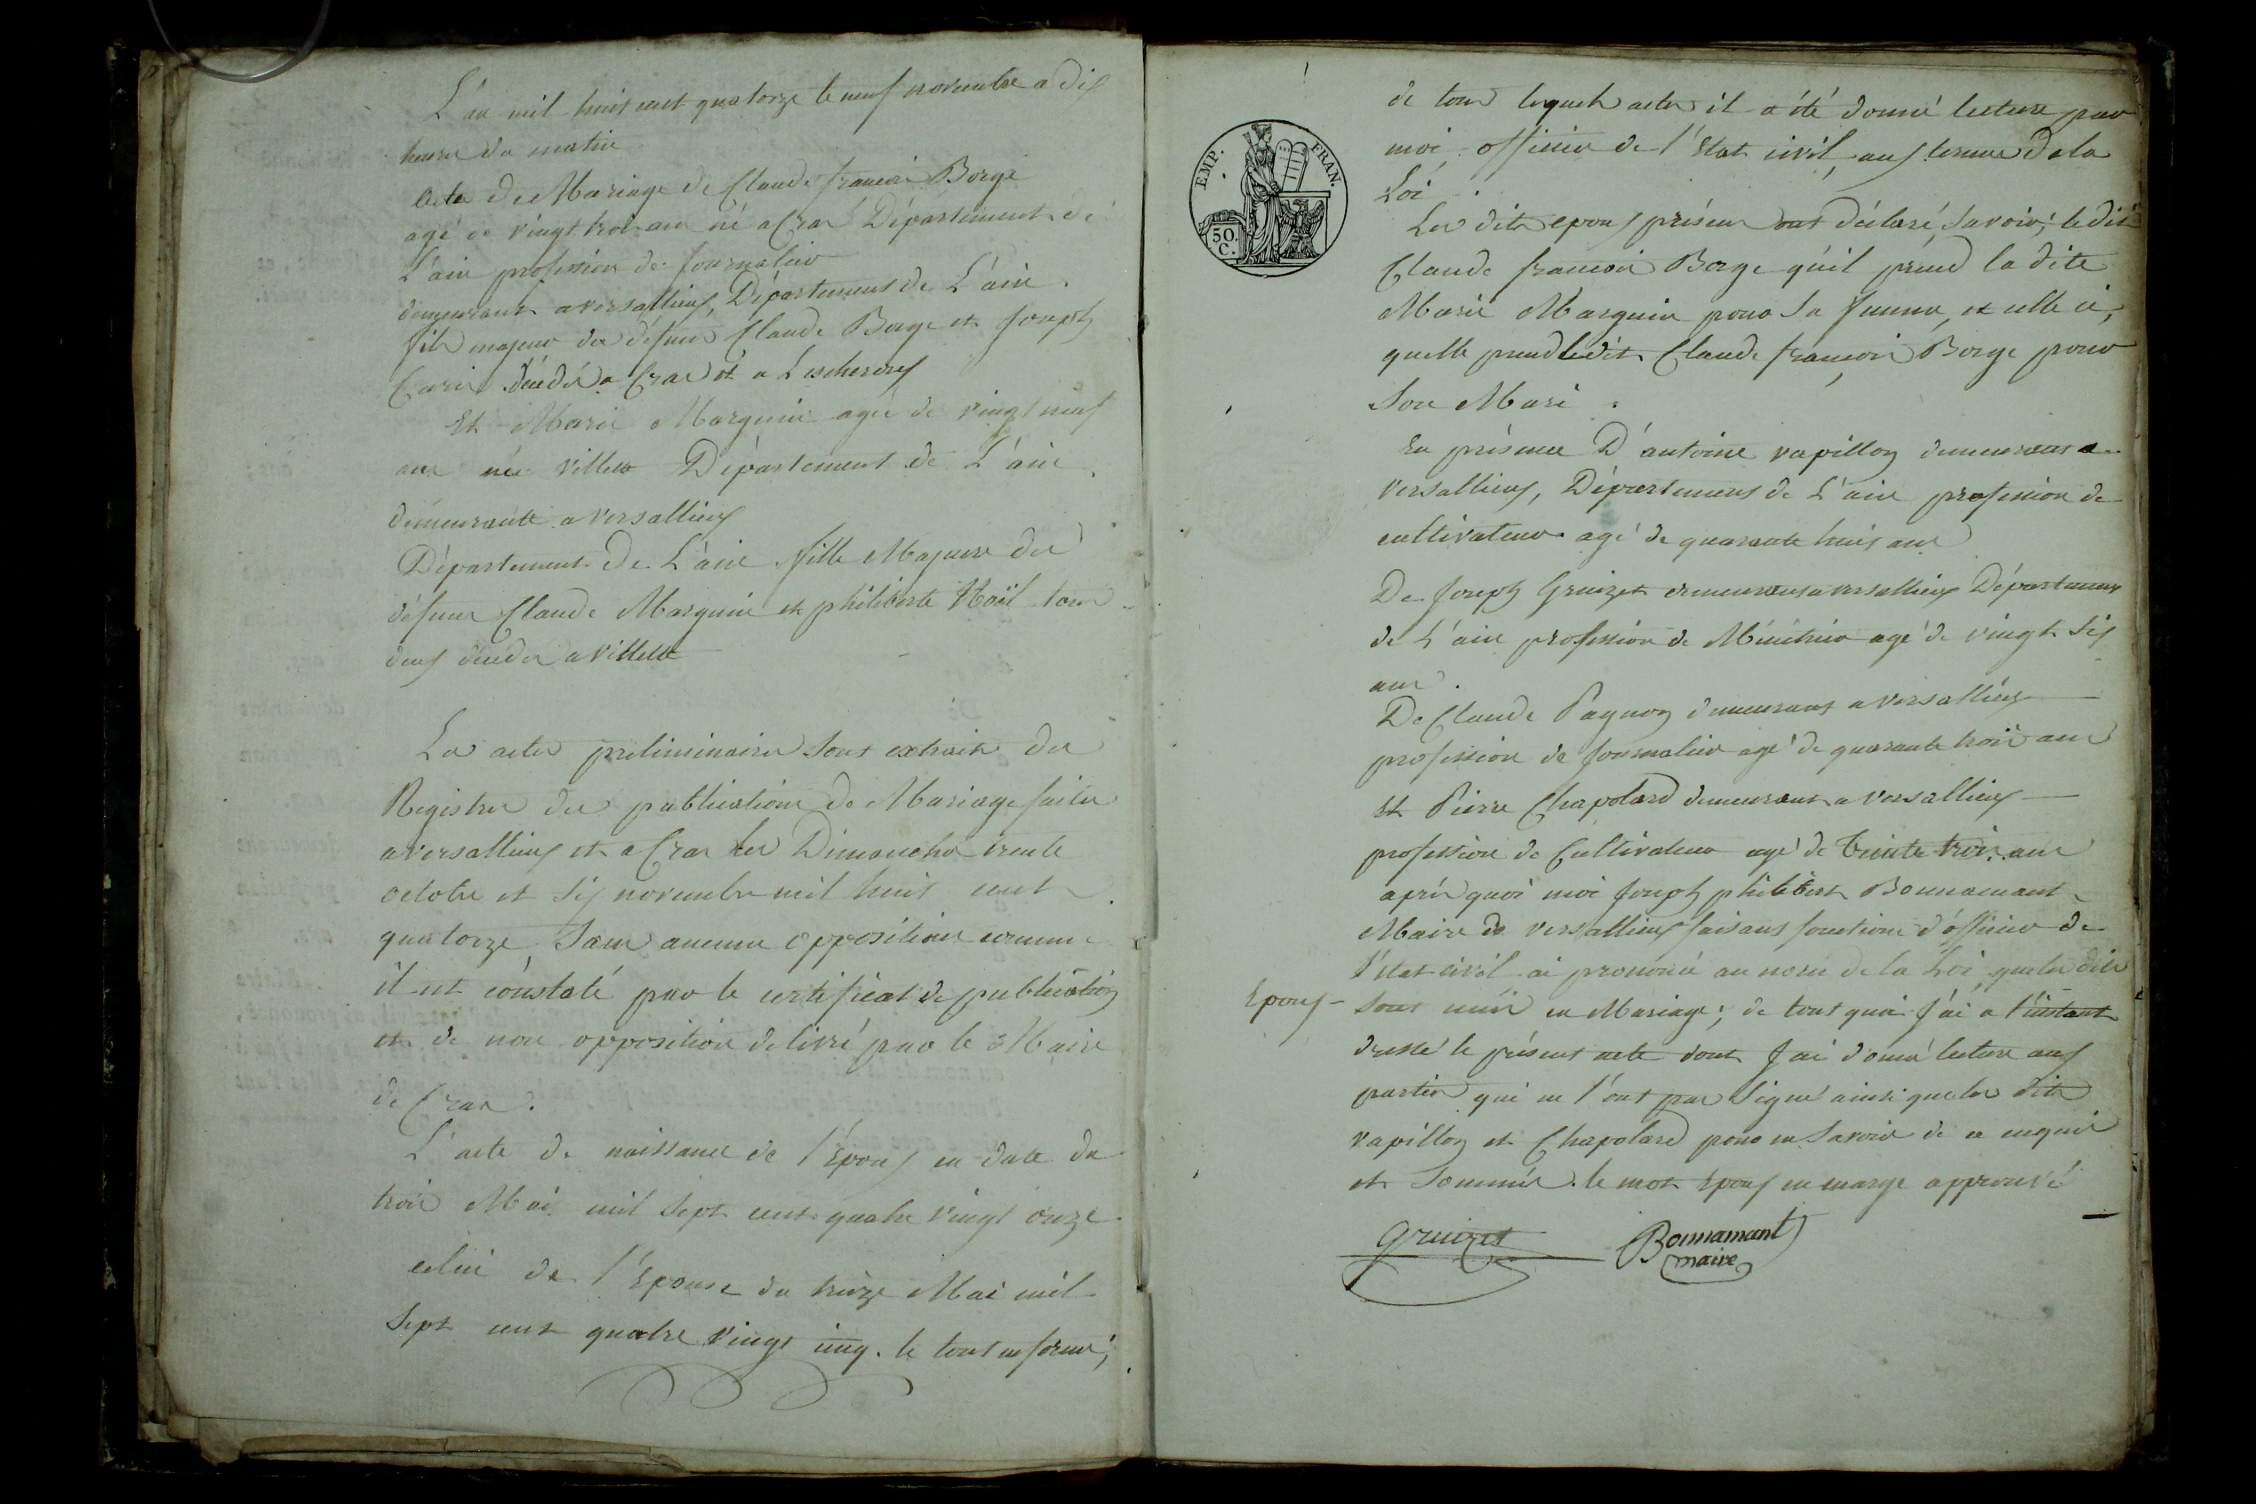 L'an mil huit cent quatorze le neuf novembre a dix
heures du matin
Acte de Mariage de Claude françois Borge
agé de vingt trois ans né a Cras Département de
L'ain profession de Journalier
demeurant a versallieux, Département de L'ain.
fils majeur des défunts Claude Borge et Joseph
décédés a Cras et a Lescheroux
Et Marie Marguin agée de vingt neuf
ans née villette Département de L'ain.
demeurante a versallieux
Département de L'ain fille Majeure des
défunts Claude Marguin et philiberte Noël tous
deux décédés a villette
Les actes preliminaires sont extraits des
Registres des publications de Mariage faites
a versallieux et a Cras les Dimanches trente
octobre et six novembre mil huit cent
quatorze, sans aucune opposition comme
il est constaté par le certificat de publication
et de non opposition delivré par le Maire
de Cras.
L'acte de naissance de l'Epoux en date du
trois Mai mil sept cent quatre vingt onze
celui de l'Epouse du treize Mai mil
sept cent quatre vingt cinq. le tout en forme;
EMP. FRAN.
50. C.
de tous lesquels actes il a été donné lecture par
moi officier de l'Etat civil, aux termes de la
Loi.
Les dits epoux présens ont déclaré, savoir; le dit
Claude françois Borge qu'il prend la dite
Marie Marguin pour sa femme, et celle ci,
quelle prend ledit Claude françois Borge pour
Son Mari.
En présence D'antoine vapillon demeurant a
versallieux, Département de L'ain profession de
cultivateur agé de quarante huit ans
De Joseph Gruizet demeurant a versallieux Département
de L'ain profession de Ménétrier agé de vingt six
ans.
De Claude Pagnon demeurant a versallieux
profession de Journalier agé de quarante trois ans
et Pierre Chapolard demeurant a versallieux
profession de Cultivateur agé de trente trois ans
après quoi moi Joseph philibert Bonnamant
Maire de versallieux faisant fonctions d'officier de
l'état civil, ai prononcé au nom de la Loi, que les dits
Epoux - sont unis en Mariage; de tout quoi j'ai a l'instant
dressé le présent acte dont j'ai donné lecture aux
parties qui ne l'ont pas signé ainsi que les dits
vapillon et Chapolard pour ne savoir de ce enquis
et sommés. le mot Epoux en marge approuvé
Gruizet Bonnamant
maire